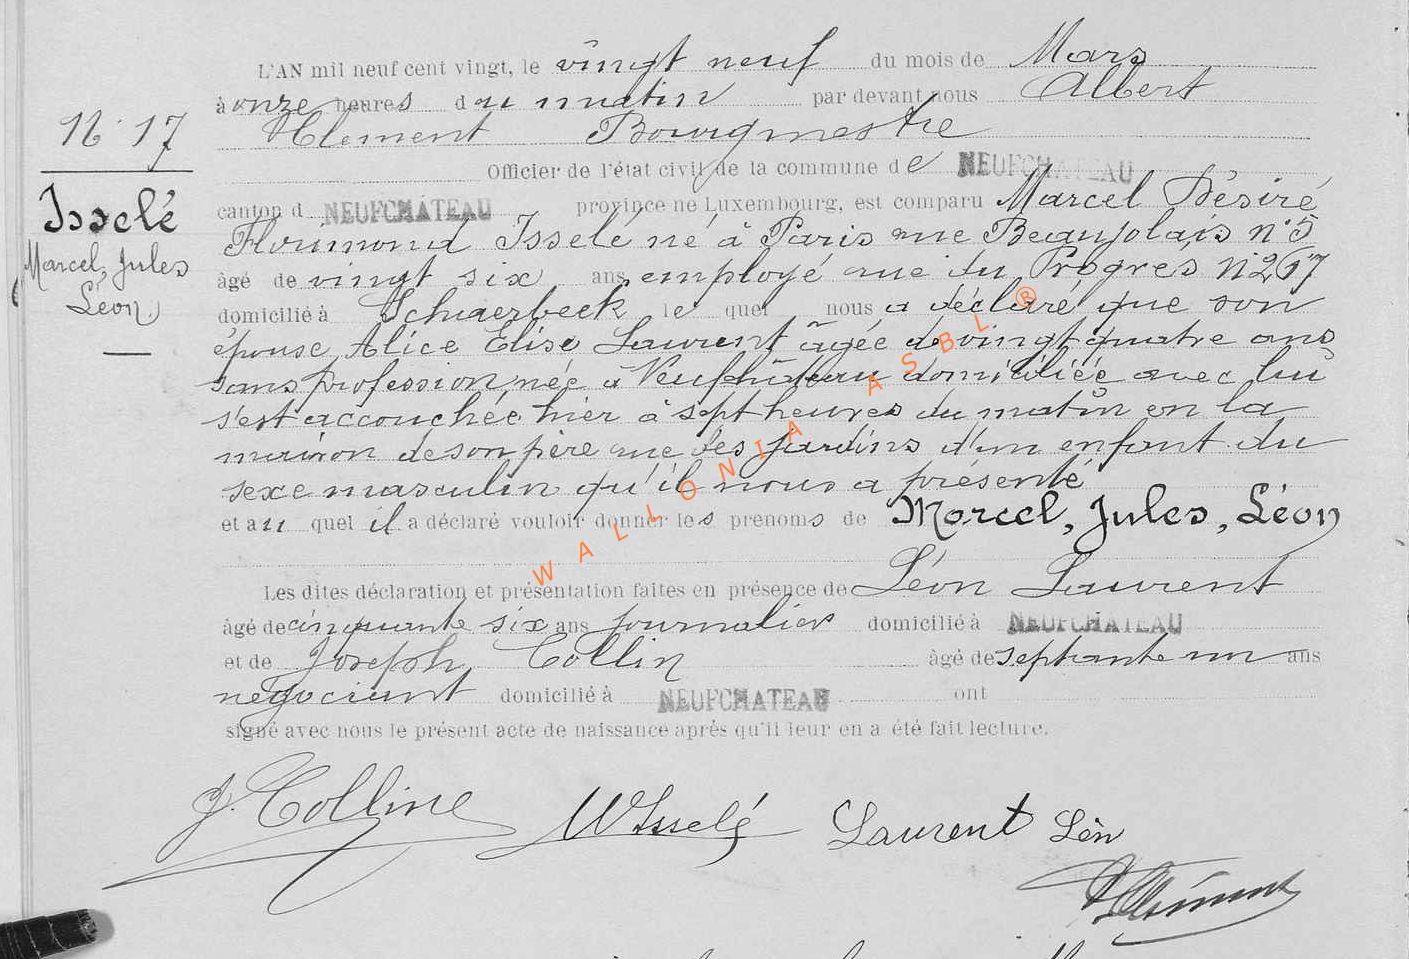 L'AN mil neuf cent vingt, le vingt neuf du mois de Mars
à onze heures du matin par devant nous Albert
Clement Bourgmestre
N° 17
Officier de l'état civil de la commune de NEUFCHATEAU
Isselé
Marcel, Jules
Léon
canton d NEUFCHATEAU province de Luxembourg, est comparu Marcel Désiré
Florimond Isselé né à Paris rue Beaujolais n° 5
âgé de vingt six ans employé rue du Progres N° 217
domicilié à Schaerbeek le quel nous a déclaré que son
épouse Alice Elise Laurent âgée de vingt quatre ans
sans profession née à Neufchâteau domiciliée avec lui
s'est accouchée hier à sept heures du matin en la
maison de son père rue des jardins d'un enfant du
sexe masculin qu'il nous a présenté
et au quel il a déclaré vouloir donner les prenoms de Marcel, Jules, Léon
Les dites déclaration et présentation faites en présence de Léon Laurent
âgé de cinquante six ans journalier domicilié à NEUFCHATEAU
et de Joseph Collin âgé de septante un ans
négociant domicilié à NEUFCHATEAU ont
signé avec nous le présent acte de naissance après qu'il leur en a été fait lecture.
J. Colline Isselé Laurent Léon
Clément
WALLONIA ASBL ®